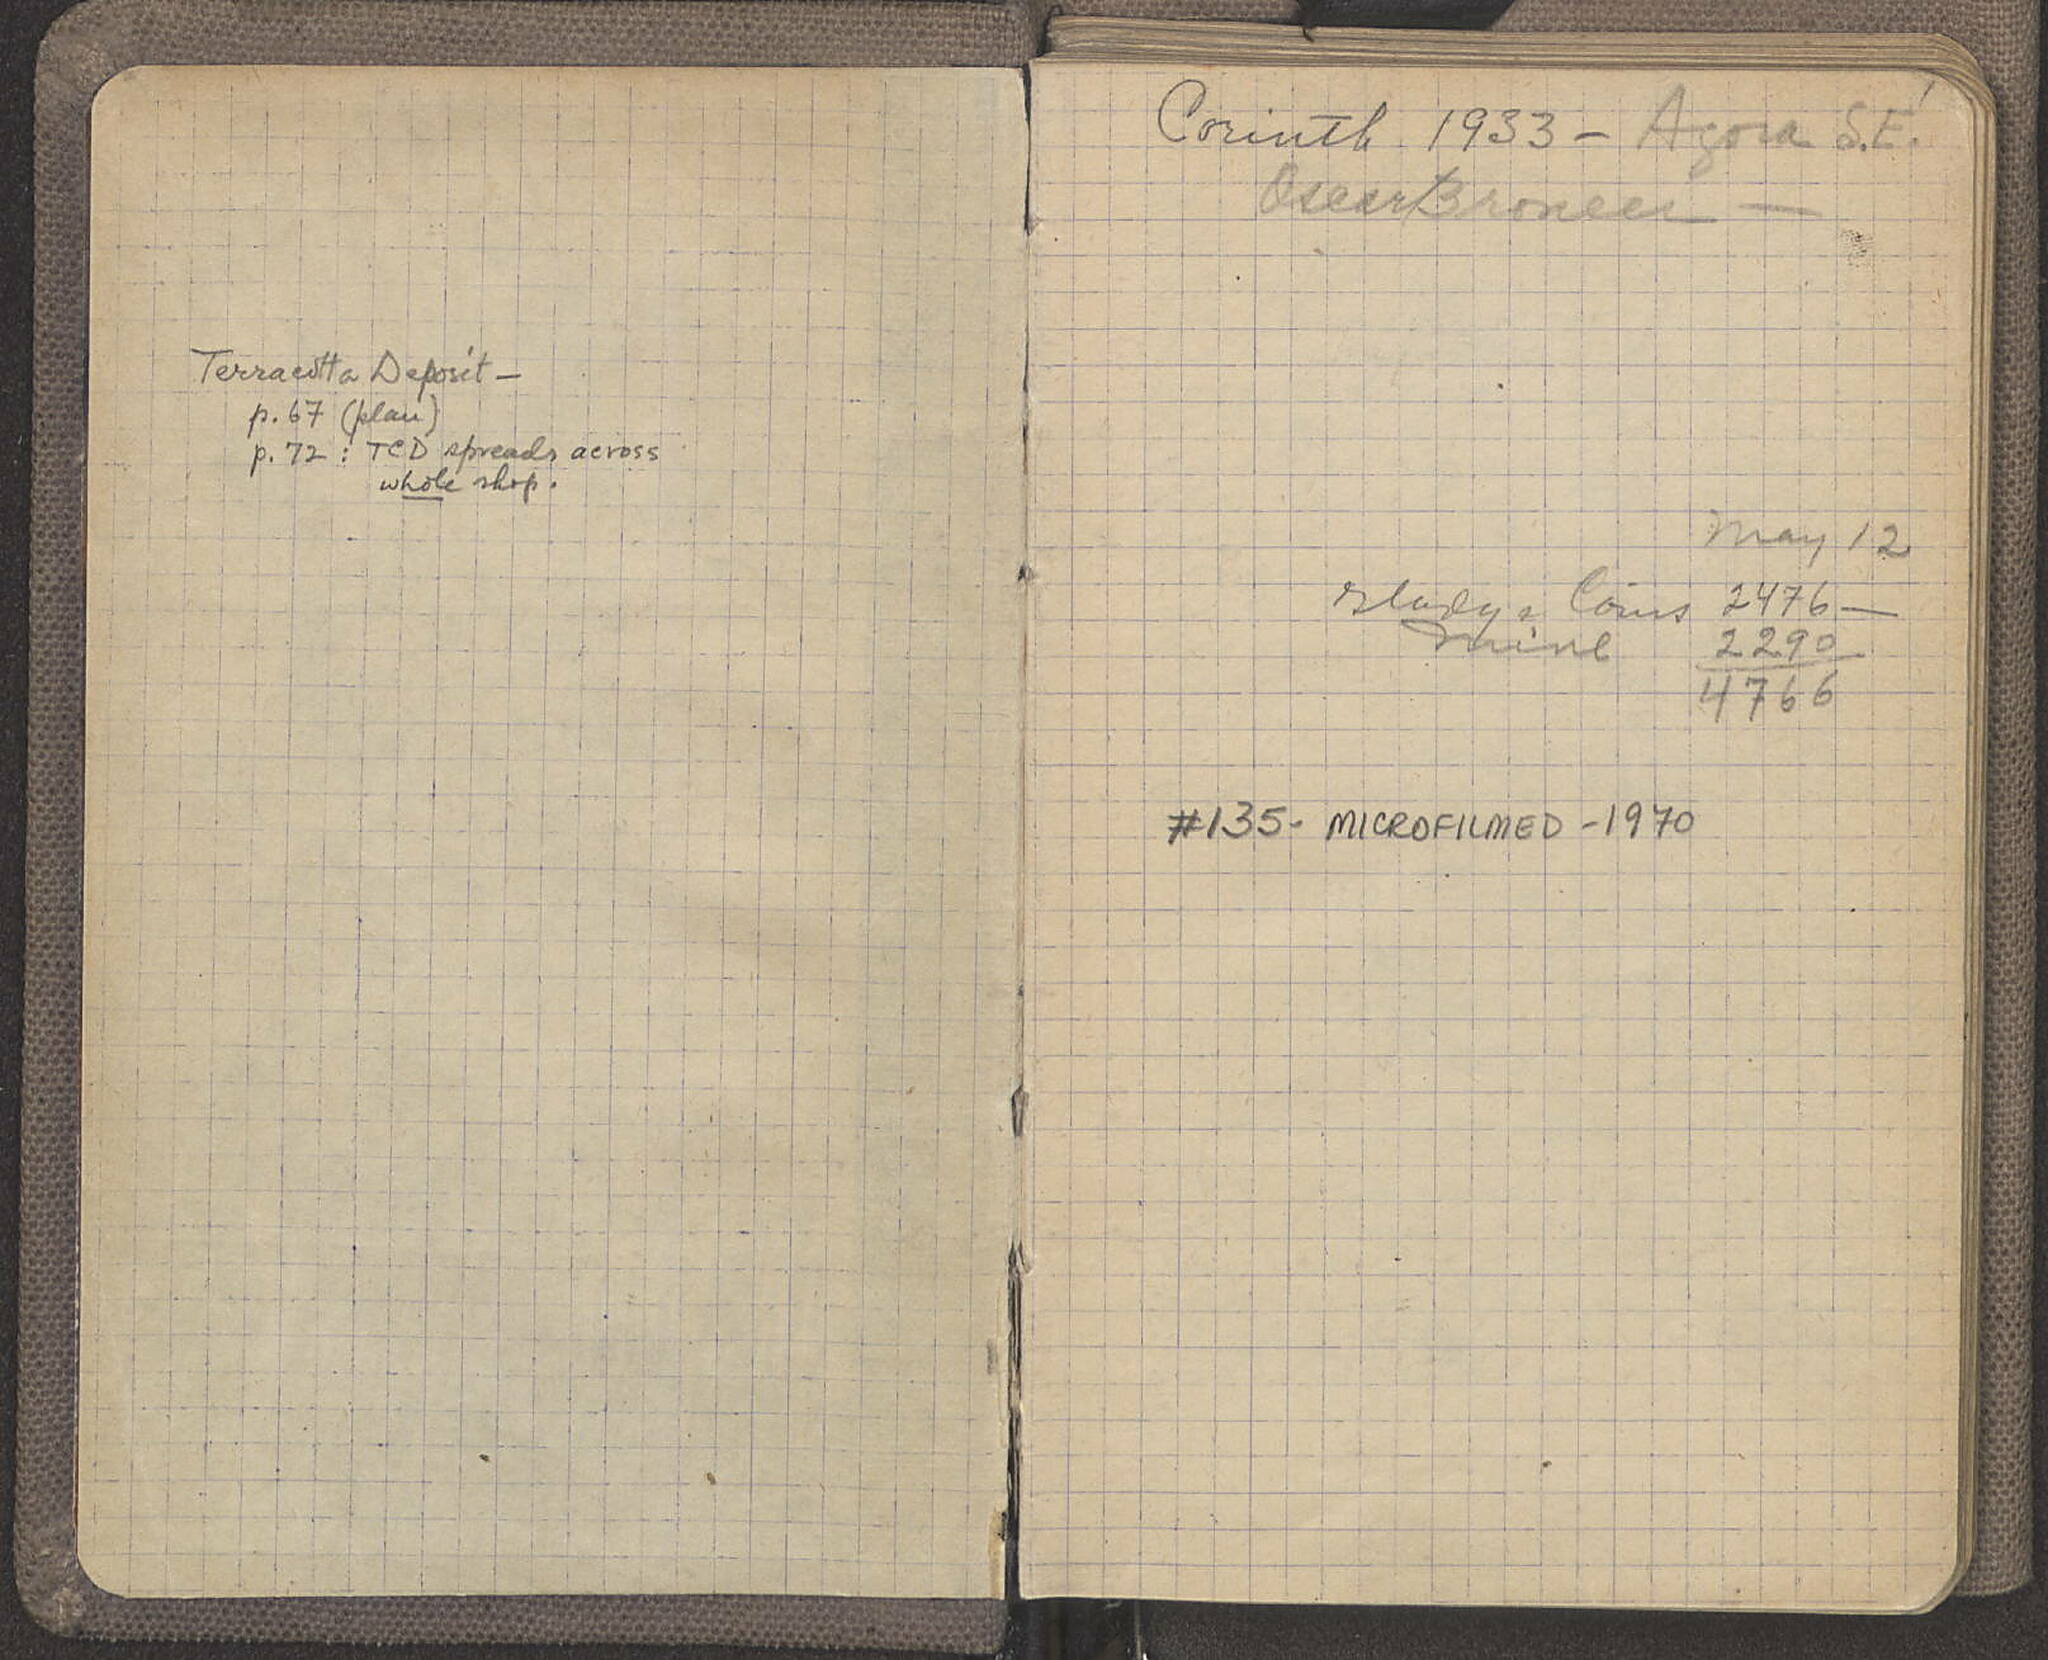 Terracotta Deposit –
p. 67 (plan)
p. 72 : TCD spreads across
whole shop.
Corinth 1933 – Agora S.E.
Oscar Broneer —
May 12
Gladys Coins 2476 —
Mine 2290
4766
#135- MICROFILMED - 1970